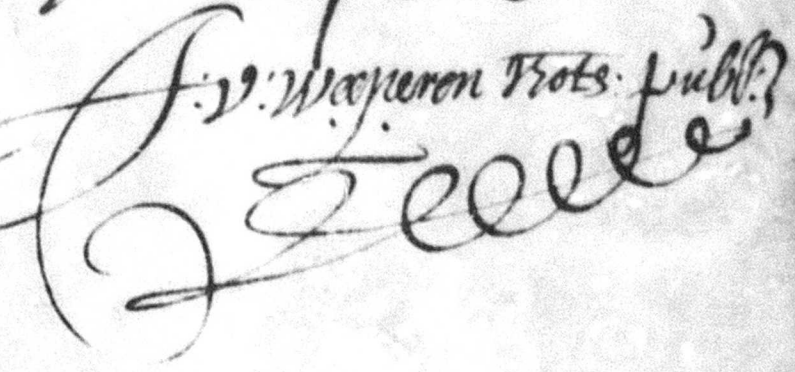 J: V: Waeperen Nots. publ.